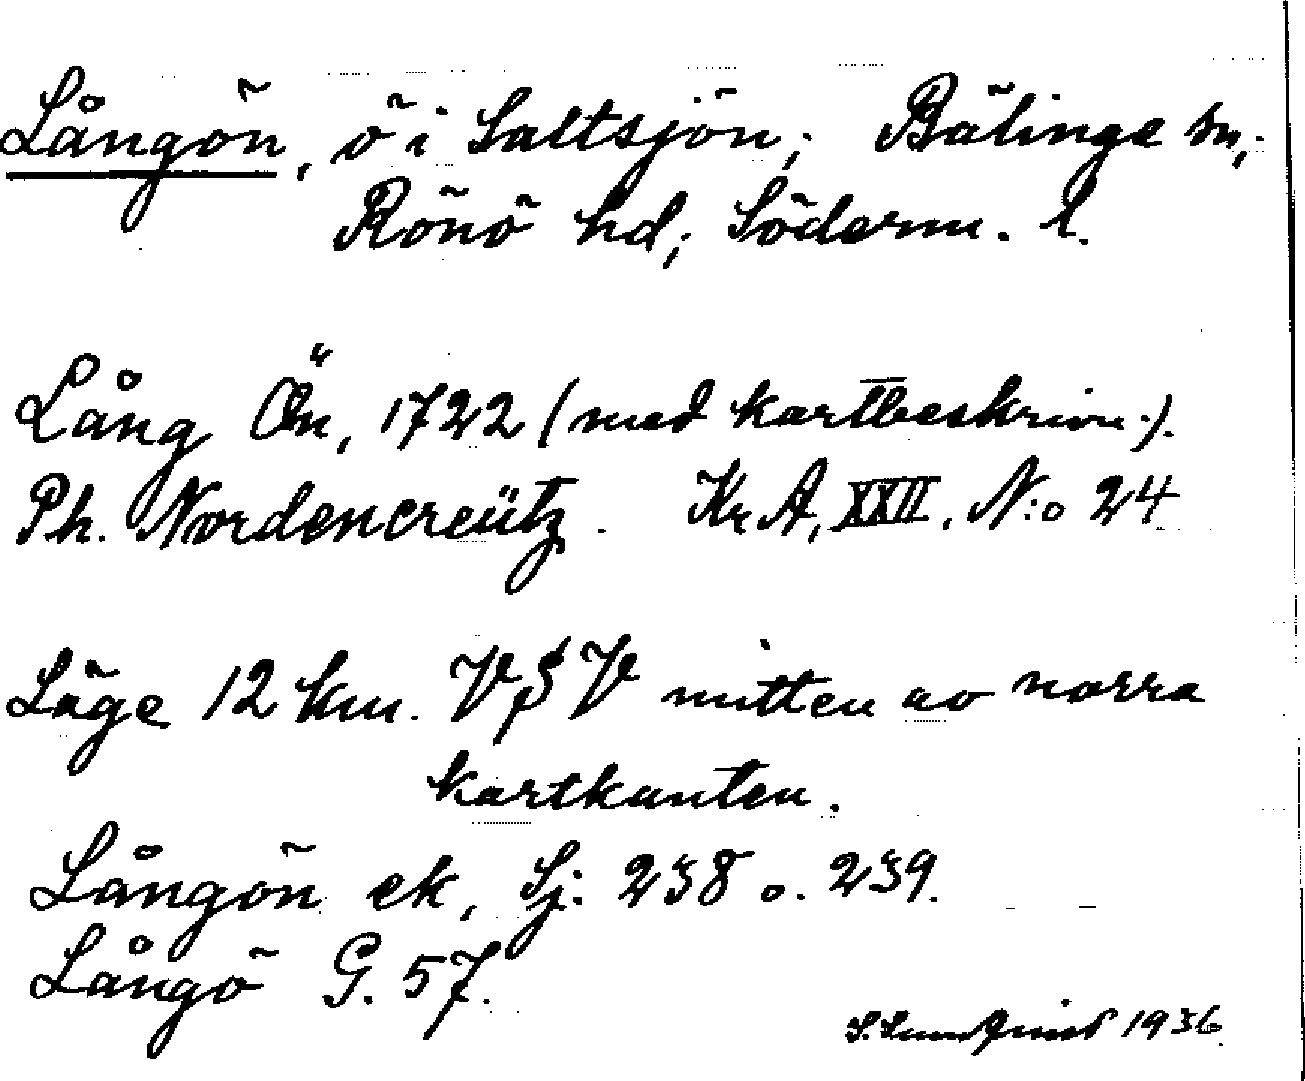 Långön, ö i Saltsjön; Bälinge sn,
Rönö hd; Söderm. l.
Lång Ön, 1722 (med kartbeskrivn.).
Ph. Nordencreütz. Kr A, XXII, N:o 24
Läge 12 km. VSV mitten av norra
kartkanten.
Långön ek, Sj: 238 o. 239.
Långö G. 57.
S. Lundqvist 1936